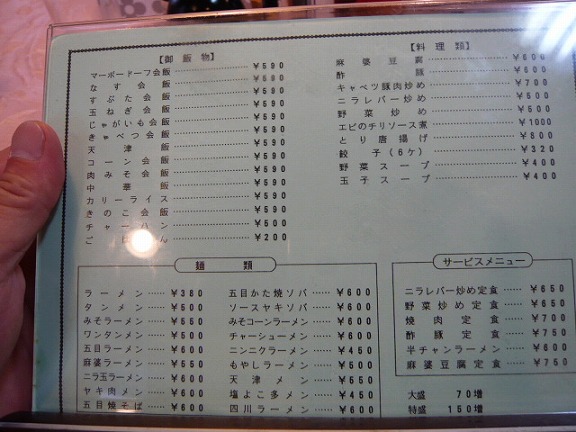 【御飯物】
マーボードーフ会飯 ¥590
なす会飯 ¥590
すぶた会飯 ¥590
玉ねぎ会飯 ¥590
じゃがいも会飯 ¥590
きゃべつ会飯 ¥590
天津飯 ¥590
コーン会飯 ¥590
肉みそ会飯 ¥590
中華飯 ¥590
カリーライス ¥590
きのこ会飯 ¥590
チャーハン ¥500
ごはん ¥200
【料理類】
麻婆豆腐 ¥600
酢豚 ¥600
キャベツ豚肉炒め ¥700
ニラレバー炒め ¥500
野菜炒め ¥500
エビのチリソース煮 ¥1000
とり唐揚げ ¥800
餃子(6ケ) ¥320
野菜スープ ¥400
玉子スープ ¥400
麺類
ラーメン ¥380
タンメン ¥500
みそラーメン ¥550
ワンタンメン ¥500
五目ラーメン ¥600
麻婆ラーメン ¥550
ニラ玉ラーメン ¥600
ヤキ肉メン ¥600
五目焼そば ¥600
五目かた焼ソバ ¥600
ソースヤキソバ ¥600
みそコーンラーメン ¥600
チャーシューメン ¥600
ニンニクラーメン ¥450
もやしラーメン ¥500
天津メン ¥550
塩よこ多メン ¥450
四川ラーメン ¥600
サービスメニュー
ニラレバー炒め定食 ¥650
野菜炒め定食 ¥650
焼肉定食 ¥700
酢豚定食 ¥750
半チャンラーメン ¥600
麻婆豆腐定食 ¥750
大盛 70増
特盛 150増